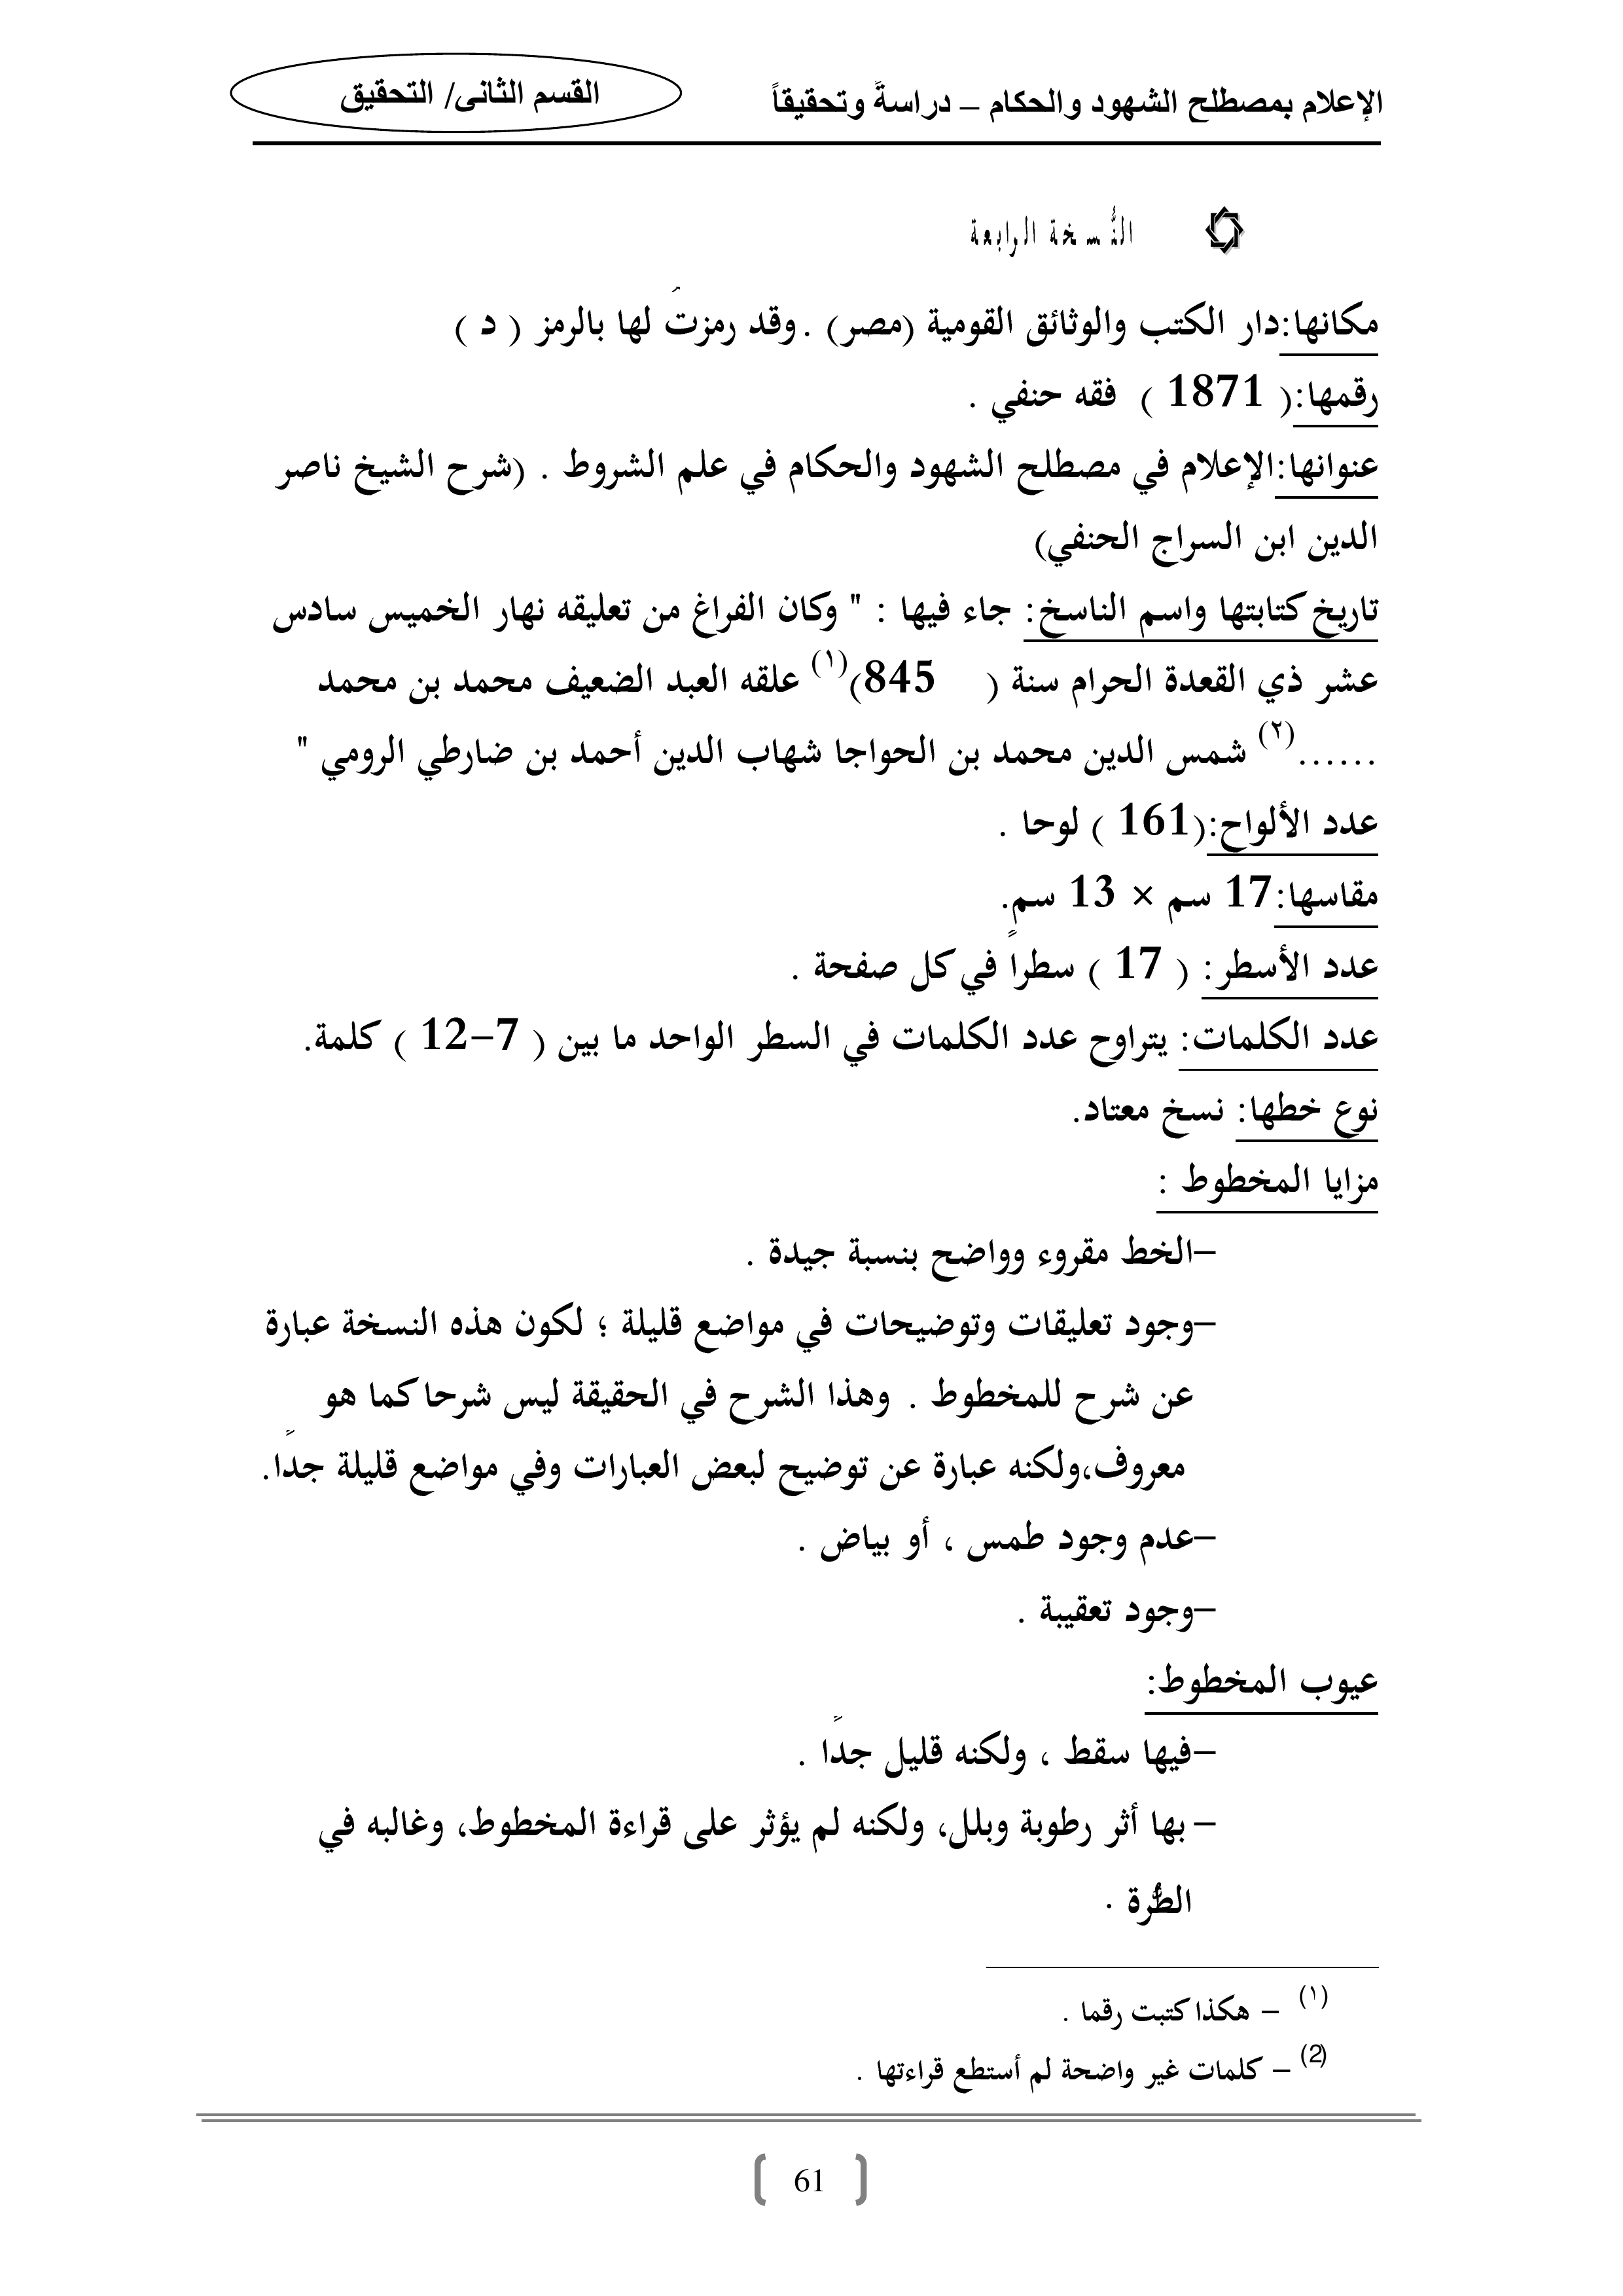 الإعلام بمصطلح الشهود والحكام – دراسةً وتحقيقاً
القسم الثانى/ التحقيق
النُّسخة الرابعة
مكانها:دار الكتب والوثائق القومية (مصر) . وقد رمزتُ لها بالرمز ( د )
رقمها:( 1871 ) فقه حنفي .
عنوانها:الإعلام في مصطلح الشهود والحكام في علم الشروط . (شرح الشيخ ناصر
الدين ابن السراج الحنفي)
تاريخ كتابتها واسم الناسخ: جاء فيها : " وكان الفراغ من تعليقه نهار الخميس سادس
عشر ذي القعدة الحرام سنة ( 845)(١) علقه العبد الضعيف محمد بن محمد
......(٢) شمس الدين محمد بن الحواجا شهاب الدين أحمد بن ضارطي الرومي "
عدد الألواح:(161 ) لوحا .
مقاسها:17 سم × 13 سم.
عدد الأسطر: ( 17 ) سطراً في كل صفحة .
عدد الكلمات: يتراوح عدد الكلمات في السطر الواحد ما بين ( 7–12 ) كلمة.
نوع خطها: نسخ معتاد.
مزايا المخطوط :
–الخط مقروء وواضح بنسبة جيدة .
–وجود تعليقات وتوضيحات في مواضع قليلة ؛ لكون هذه النسخة عبارة
عن شرح للمخطوط . وهذا الشرح في الحقيقة ليس شرحا كما هو
معروف،ولكنه عبارة عن توضيح لبعض العبارات وفي مواضع قليلة جدًا.
–عدم وجود طمس ، أو بياض .
–وجود تعقيبة .
عيوب المخطوط:
–فيها سقط ، ولكنه قليل جدًا .
– بها أثر رطوبة وبلل، ولكنه لم يؤثر على قراءة المخطوط، وغالبه في
الطُّرة .
(١) – هكذا كتبت رقما .
(2) – كلمات غير واضحة لم أستطع قراءتها .
61